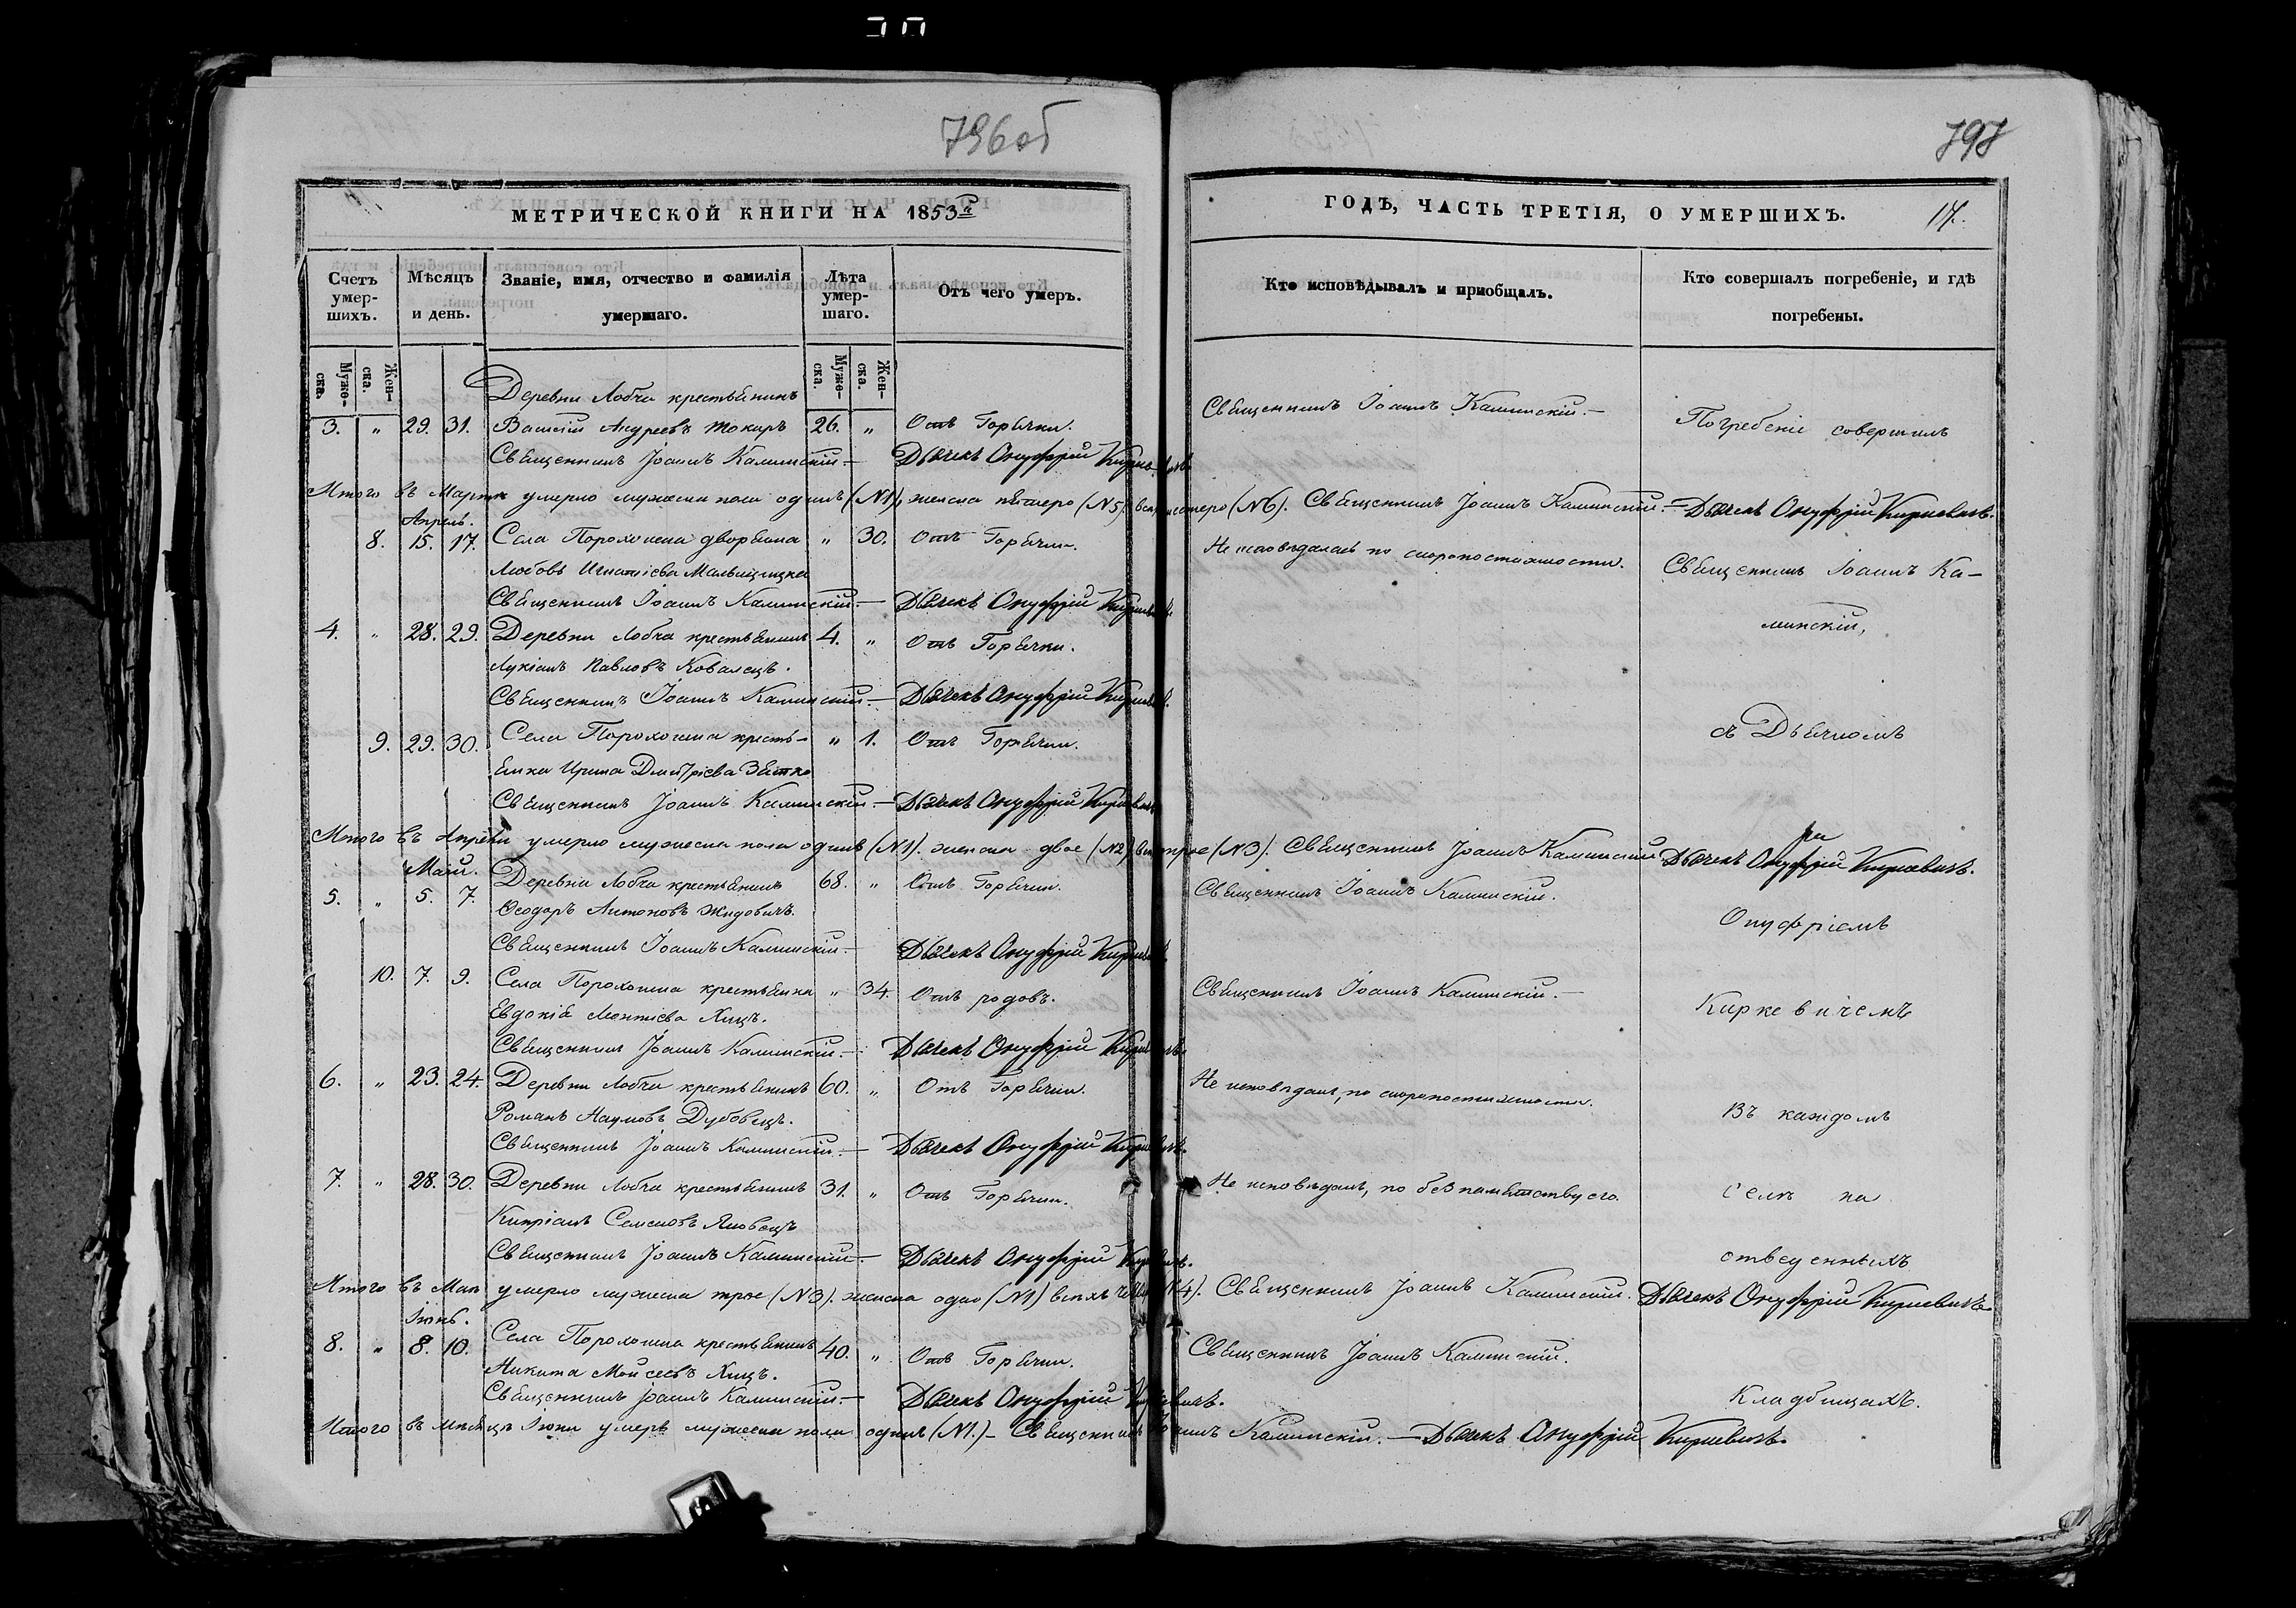 796об
797
МЕТРИЧЕСКОЙ КНИГИ НА 1853й
ГОДЪ, ЧАСТЬ ТРЕТІЯ, О УМЕРШИХЪ. 17.
Счетъ умер-шихъ.
Мѣсяцъ и день.
Званіе, имя, отчество и фамилія умершаго.
Лѣта умер-шаго.
Отъ чего умеръ.
Кто исповѣдывалъ и пріобщалъ.
Кто совершалъ погребеніе, и гдѣ погребены.
Муже-ска. Жен-ска.
Муже-ска. Жен-ска.
Деревни Лобча крестьянинъ
3. „ 29. 31. Василій Андреевъ Токарь 26. „ Отъ Горячки. Священникъ Іоаннъ Каминскій.— Погребеніе совершилъ
Священникъ Іоаннъ Каминскій— Дьячекъ Онуфрій Киркевичъ
Итого въ Мартѣ умерло мужеска пола одинъ (N1), женска пятеро (N5), всѣхъ шестеро (N6). Священникъ Іоаннъ Каминскій.— Дьячекъ Онуфрій Киркевичъ.
Апрель.
8. 15. 17. Села Порохонска дворянка „ 30. Отъ Горячки. Не исповѣдалась по скоропостижности. Священникъ Іоаннъ Ка-
Любовь Игнатіева
Священникъ Іоаннъ Каминскій— Дьячекъ Онуфрій Киркевичъ.
4. „ 28. 29. Деревни Лобча крестьянинъ 4. „ Отъ Горячки. минскій,
Лукіанъ Павловъ Ковалецъ.
Священникъ Іоаннъ Каминскій— Дьячекъ Онуфрій Киркевичъ.
9. 29. 30. Села Порохонска кресть- „ 1. Отъ Горячки. съ Дьячкомъ
янка Ирина Дмитріева
Священникъ Іоаннъ Каминскій— Дьячекъ Онуфрій Киркевичъ
Итого въ Апрѣлѣ умерло мужеска пола одинъ (N1). женска двое (N2) всѣхъ трое (N3). Священникъ Іоаннъ Каминскій Дьячекъ Онуфрій Киркевичъ.
Май.
5. „ 5. 7. Деревни Лобча крестьянинъ 68. „ Отъ Горячки. Священникъ Іоаннъ Каминскій. Онуфріемъ
Ѳеодоръ Антоновъ Жидовичъ.
Священникъ Іоаннъ Каминскій— Дьячекъ Онуфрій Киркевичъ.
10. 7. 9. Села Порохонска крестьянка „ 34. Отъ родовъ. Священникъ Іоаннъ Каминскій.— Киркевичемъ
Евдокія Леонтіева Хицъ.
Священникъ Іоаннъ Каминскій— Дьячекъ Онуфрій Киркевичъ
6. „ 23. 24. Деревни Лобча крестьянинъ 60. „ Отъ Горячки. Не исповѣданъ, по скоропостижности. въ каждомъ
Романъ Наумовъ Дубовецъ.
Священникъ Іоаннъ Каминскій— Дьячекъ Онуфрій Киркевичъ.
7. „ 28. 30. Деревни Лобча крестьянинъ 31. „ Отъ Горячки. Не исповѣданъ, по безпамятству его. селѣ на
Кипріанъ Семеновъ Яковецъ
Священникъ Іоаннъ Каминскій— Дьячекъ Онуфрій Киркевичъ. отведенныхъ
Итого въ Маѣ умерло мужеска трое (N3). женска одно (N1) всѣхъ четверо (N4). Священникъ Іоаннъ Каминскій. Дьячекъ Онуфрій Киркевичъ
Іюнь.
8. „ 8. 10. Села Порохонска крестьянинъ 40. „ Отъ Горячки. Священникъ Іоаннъ Каминскій.
Никита Мойсеевъ Хицъ.
Священникъ Іоаннъ Каминскій— Дьячекъ Онуфрій Киркевичъ. кладбищахъ.
Итого въ мѣсяцѣ Іюнѣ умеръ мужеска пола одинъ (N1.)— Священникъ Іоаннъ Каминскій.— Дьячекъ Онуфрій Киркевичъ.